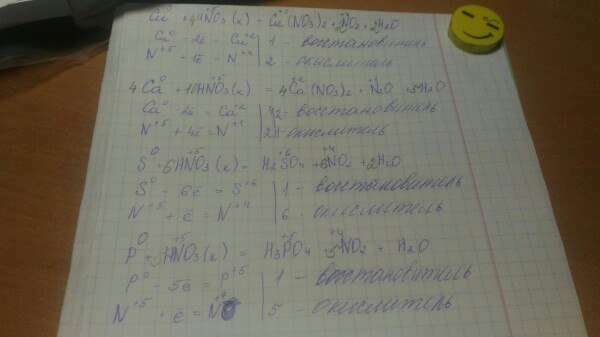 Cu⁰ + 4HN⁺⁵O₃(к) = Cu⁺²(NO₃)₂ + 2N⁺⁴O₂ + 2H₂O
Cu⁰ - 2ē = Cu⁺² | 1 - восстановитель
N⁺⁵ - 1ē = N⁺⁴ | 2 - окислитель
4Ca⁰ + 10HN⁺⁵O₃(к) = 4Ca⁺²(NO₃)₂ + N⁺¹₂O + 5H₂O
Ca⁰ - 2ē = Ca⁺² | 4 2 - восстановитель
N⁺⁵ + 4ē = N⁺¹ | 2 1 - окислитель
S⁰ + 6HN⁺⁵O₃(к) = H₂S⁺⁶O₄ + 6N⁺⁴O₂ + 2H₂O
S⁰ - 6ē = S⁺⁶ | 1 - восстановитель
N⁺⁵ + ē = N⁺⁴ | 6 - окислитель
P⁰ + 5HN⁺⁵O₃(к) = H₃P⁺⁵O₄ 5N⁺⁴O₂ + H₂O
P⁰ - 5ē = P⁺⁵ | 1 - восстановитель
N⁺⁵ + ē = N⁺⁴ | 5 - окислитель